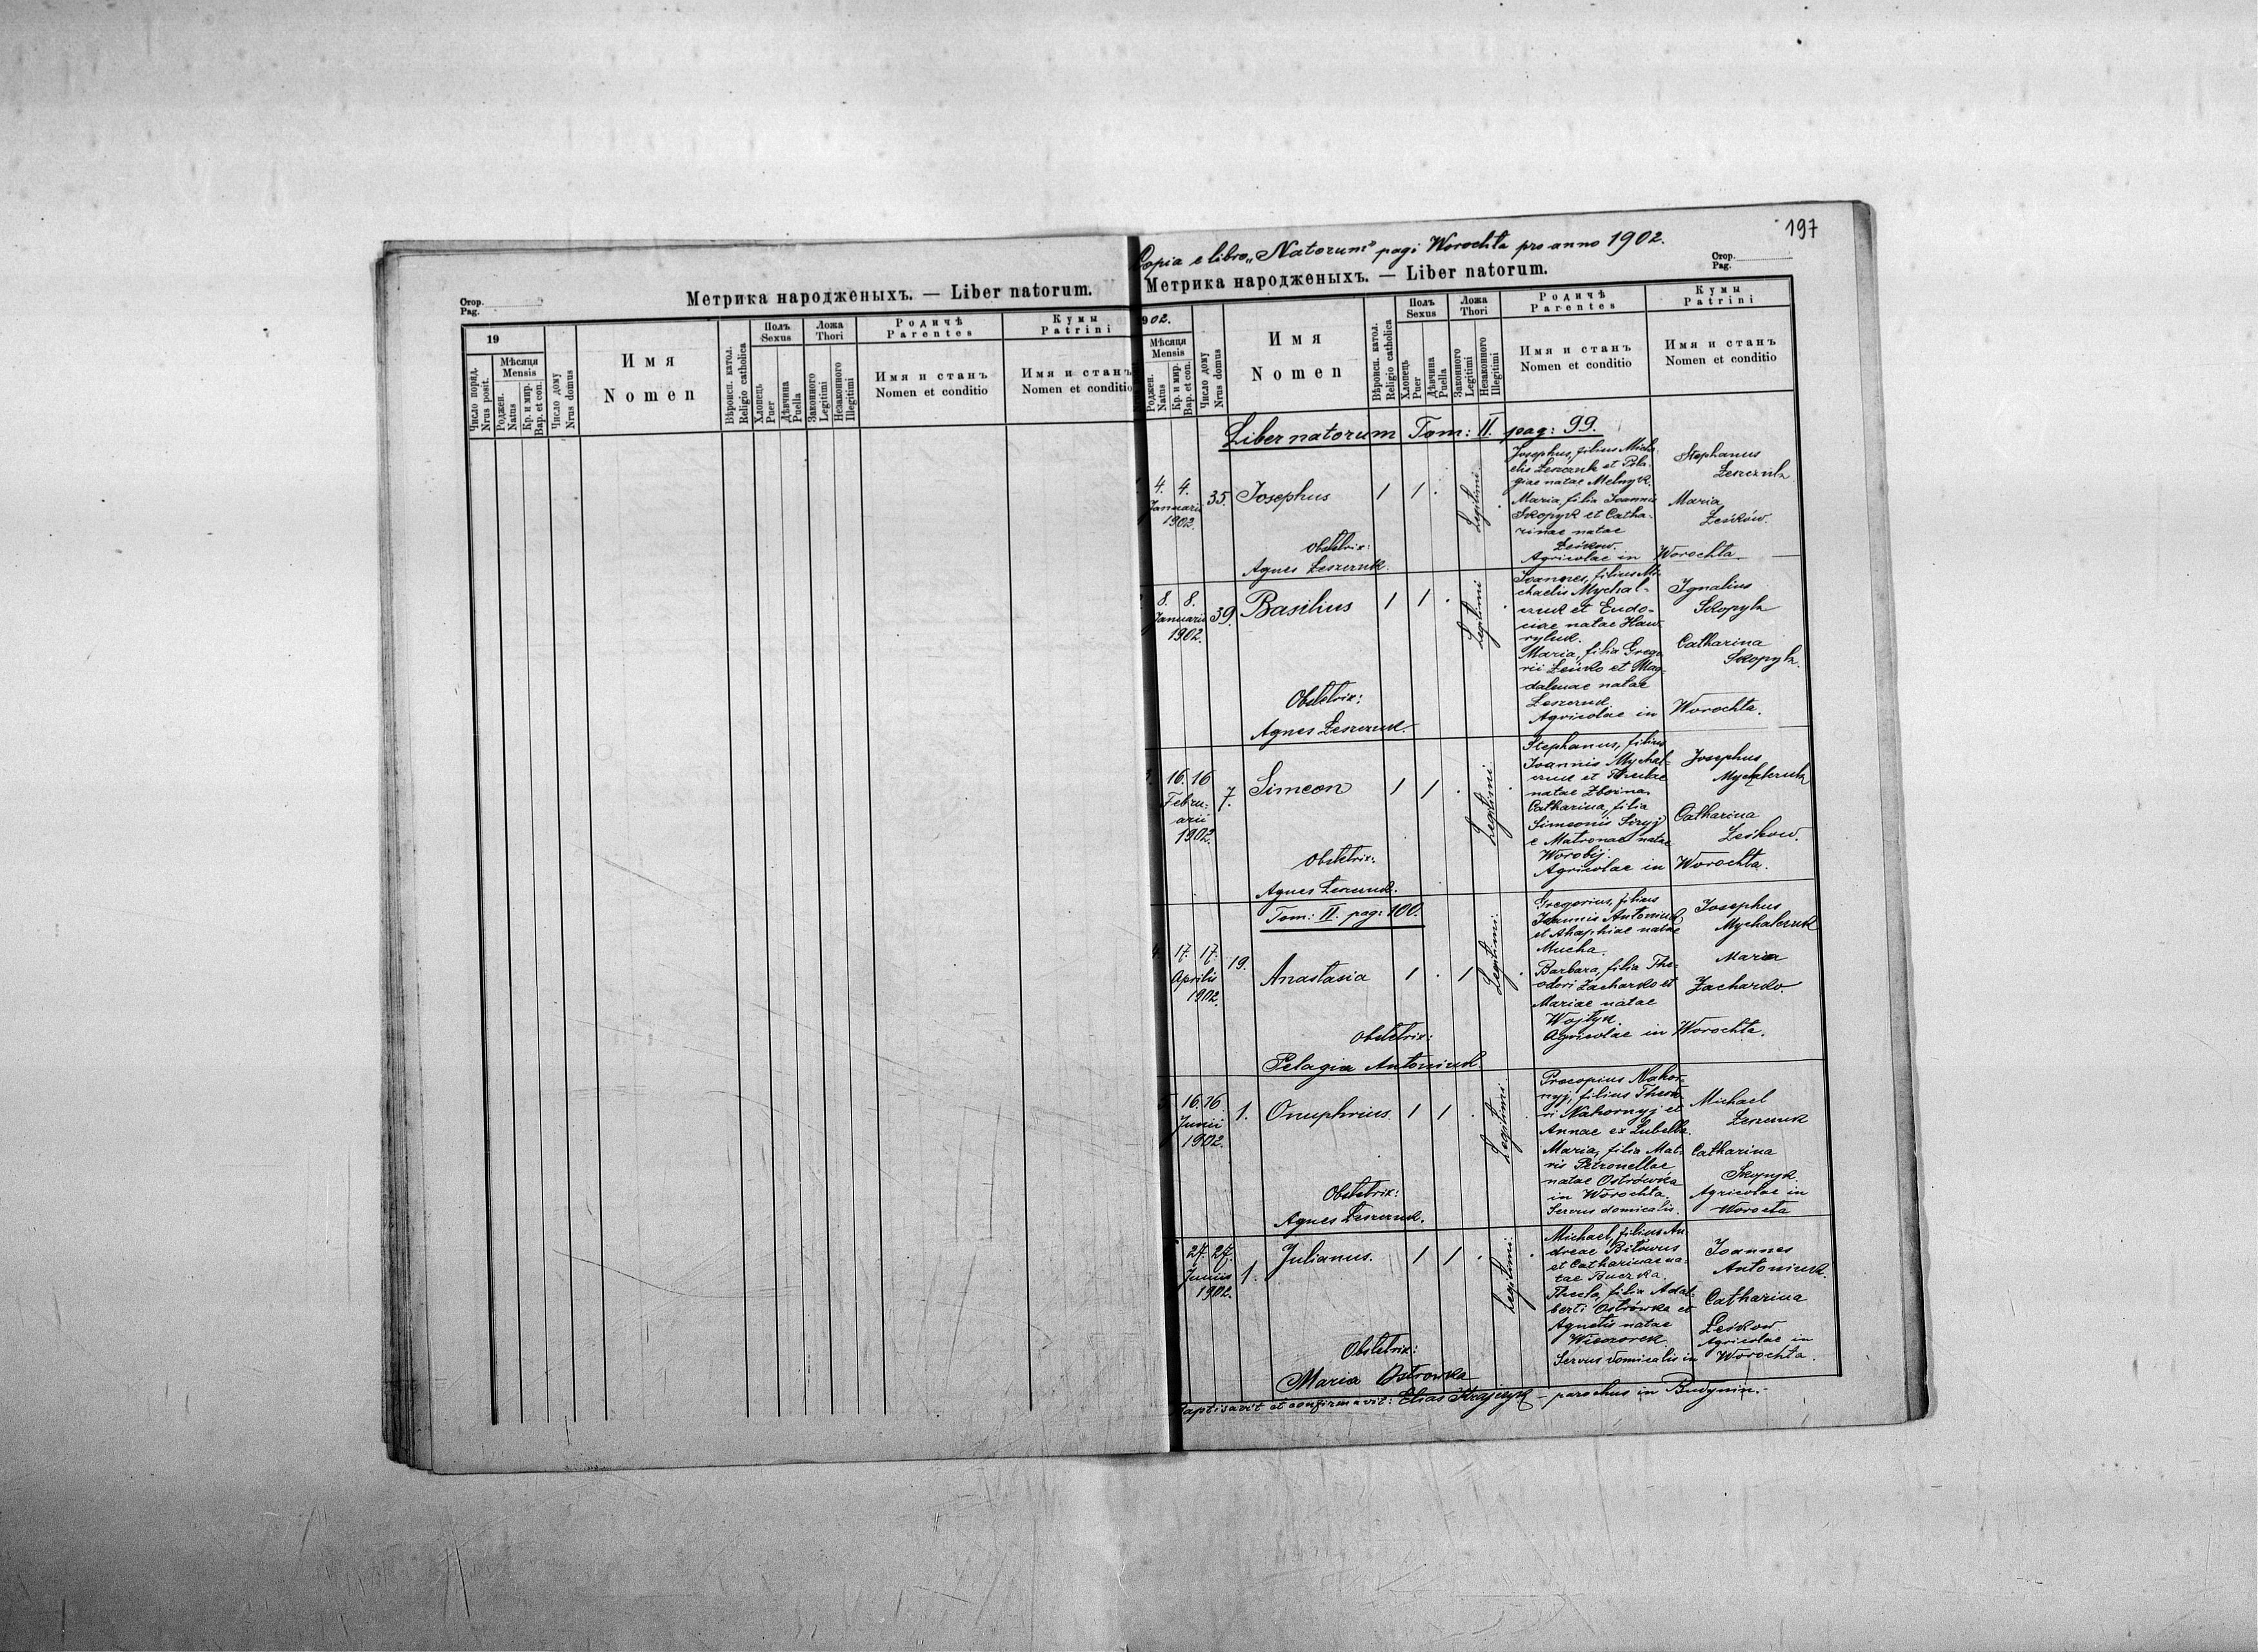 Стор.
Pag.
Метрика народженыхъ. — Liber natorum.
19
Число поряд.
Nrus posit.
Мѣсяця
Mensis
Роджен.
Natus
Кр. и мир.
Bap. et con.
Число дому
Nrus domus
Имя
Nomen
Вѣроисп. катол.
Religio catholica
Полъ
Sexus
Хлопець
Puer
Дѣвчина
Puella
Ложа
Thori
Законного
Legitimi
Незаконного
Illegitimi
Родичѣ
Parentes
Имя и станъ
Nomen et conditio
Кумы
Patrini
Имя и станъ
Nomen et conditio
197
Copia e libro „Natorum" pagi Worochta pro anno 1902.
Стор.
Pag.
Метрика народженыхъ. — Liber natorum.
902.
Мѣсяця
Mensis
Роджен.
Natus
Кр. и мир.
Bap. et con.
Число дому
Nrus domus
Имя
Nomen
Вѣроисп. катол.
Religio catholica
Полъ
Sexus
Хлопець
Puer
Дѣвчина
Puella
Ложа
Thori
Законного
Legitimi
Незаконного
Illegitimi
Родичѣ
Parentes
Имя и станъ
Nomen et conditio
Кумы
Patrini
Имя и станъ
Nomen et conditio
Liber natorum Tom: II. pag: 99.
4. 4.
Januarii
1902.
35.
Josephus
1 1 .
Legitimi
Josephus, filius Micha-
elis Leszczuk et Pela-
giae natae Melnyk.
Maria, filia Joannis
Skopyk et Catha-
rinae natae
Leśkow.
Agricolae in Worochta
Stephanus
Leszczuk
Maria
Leśków.
Obstetrix:
Agnes Leszczuk.
8. 8.
Januarii
1902.
39.
Basilius
1 1 .
Legitimi
Joannes, filius Mi-
chaelis Mychal-
czuk et Eudo-
ciae natae Haw-
ryluk.
Maria, filia Grego-
rii Leśko et Mag-
dalenae natae
Leszczuk
Agricolae in Worochta.
Ignatius
Skopyk
Catharina
Skopyk.
Obstetrix:
Agnes Leszczuk.
16. 16
Febru-
arii
1902.
7.
Simeon
1 1 .
Legitimi.
Stephanus, filius
Joannis Mychal-
czuk et Theclae
natae
Catharina, filia
Simeonis Seryj
e Matronae natae
Worobij.
Agricolae in Worochta.
Josephus
Mychalczuk
Catharina
Leśkow.
Obstetrix:
Agnes Leszczuk.
Tom: II. pag: 100.
4
17. 17.
Aprilis
1902.
19.
Anastasia
1 . 1
Legitimi.
Gregorius, filius
Joannis Antoniuk
et Ahaphiae natae
Mucha.
Barbara, filia The-
odori Zacharko et
Mariae natae
Wojtyk.
Agricolae in Worochta.
Josephus
Mychalczuk
Maria
Zacharko.
Obstetrix:
Pelagia Antoniuk
5
16. 16
Junii
1902.
1.
Onuphrius.
1 1 .
Legitimi.
Procopius Nahor-
nyj, filius Theodo-
ri Nahornyj et
Annae ex Lubella.
Maria, filia Mat-
ris Petronellae
natae Ostrówka
in Worochta.
Servus domicalis.
Michael
Leszczuk
Catharina
Skopyk.
Agricolae in
Worocta
Obstetrix:
Agnes Leszczuk.
27. 27.
Junii
1902.
1.
Julianus.
1 1 .
Legitimi.
Michael, filius An-
dreae Bitowus
et Catharinae na-
tae Buczka.
Thecla, filia Adal-
berti Ostrówka et
Agnetis natae
Wieczorek.
Servus domicalis in Worochta.
Joannes
Antoniuk.
Catharina
Leśkow
Agricolae in
Obstetrix:
Maria Ostrowka
Baptisavit et confirmavit: Elias Krajczyk – parochus in Budynin.–